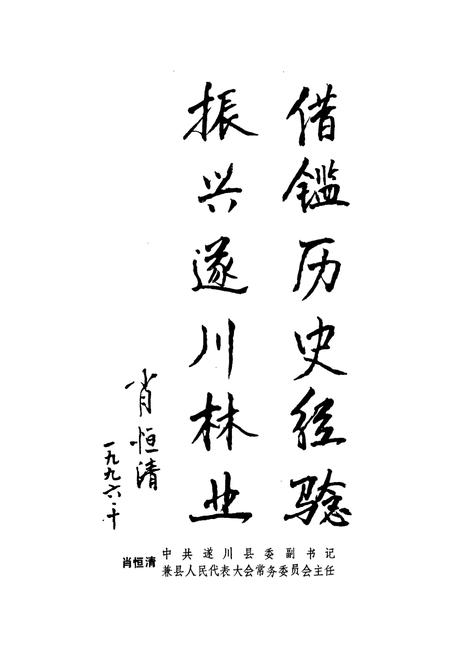 借鉴历史经验
振兴遂川林业
肖恒清
一九九六.十
肖恒清 中共遂川县委副书记
兼县人民代表大会常务委员会主任